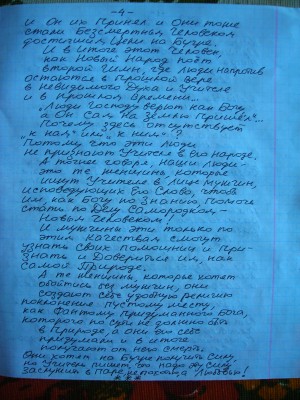 -4-
и Он их Принял и Они тоже
стали Безсмертным Человеком
достигшим Цели на Бугре.
И в итоге этот Человек
как Новый Народ поёт
второй Гимн, где люди напротив
остаются в Прошлой Вере
в Невидимого Духа и Учителе
и в Прошлом Времени...
"Люди Господу верют как Богу
а Он Сам к нам на Землю Пришёл"...
Почему здесь отсутствует
"к нам" или "к ним"?
Потому что эти люди
не признают Учителя в Его Народе.
А точнее говоря, наши люди-
это те женщины, которые
ищут Учителя в лице мужчин,
исповедующих Его Слова, чтоб
им, как Богу по Знанию, помочь
стать по Делу Самородком-
Новым Человеком!
И мужчины эти только по
этим качествам смогут
узнать своих помощниц и При-
знать и Довериться им, как
Самой Природе.
А те женщины, которые хотят
обойтись без мужчин, они
создают себе удобную религию
поклонение пустому месту,
как Фантому придуманного Бога,
которого по сути не должно быть
в Природе, а они его себе
придумали и в итоге
получают от него смерть.
Они хотят на Бугре получить Силу,
но Учитель пишет, что надо эту силу
заслужить в Паре, не походя, "Любовью"!
***